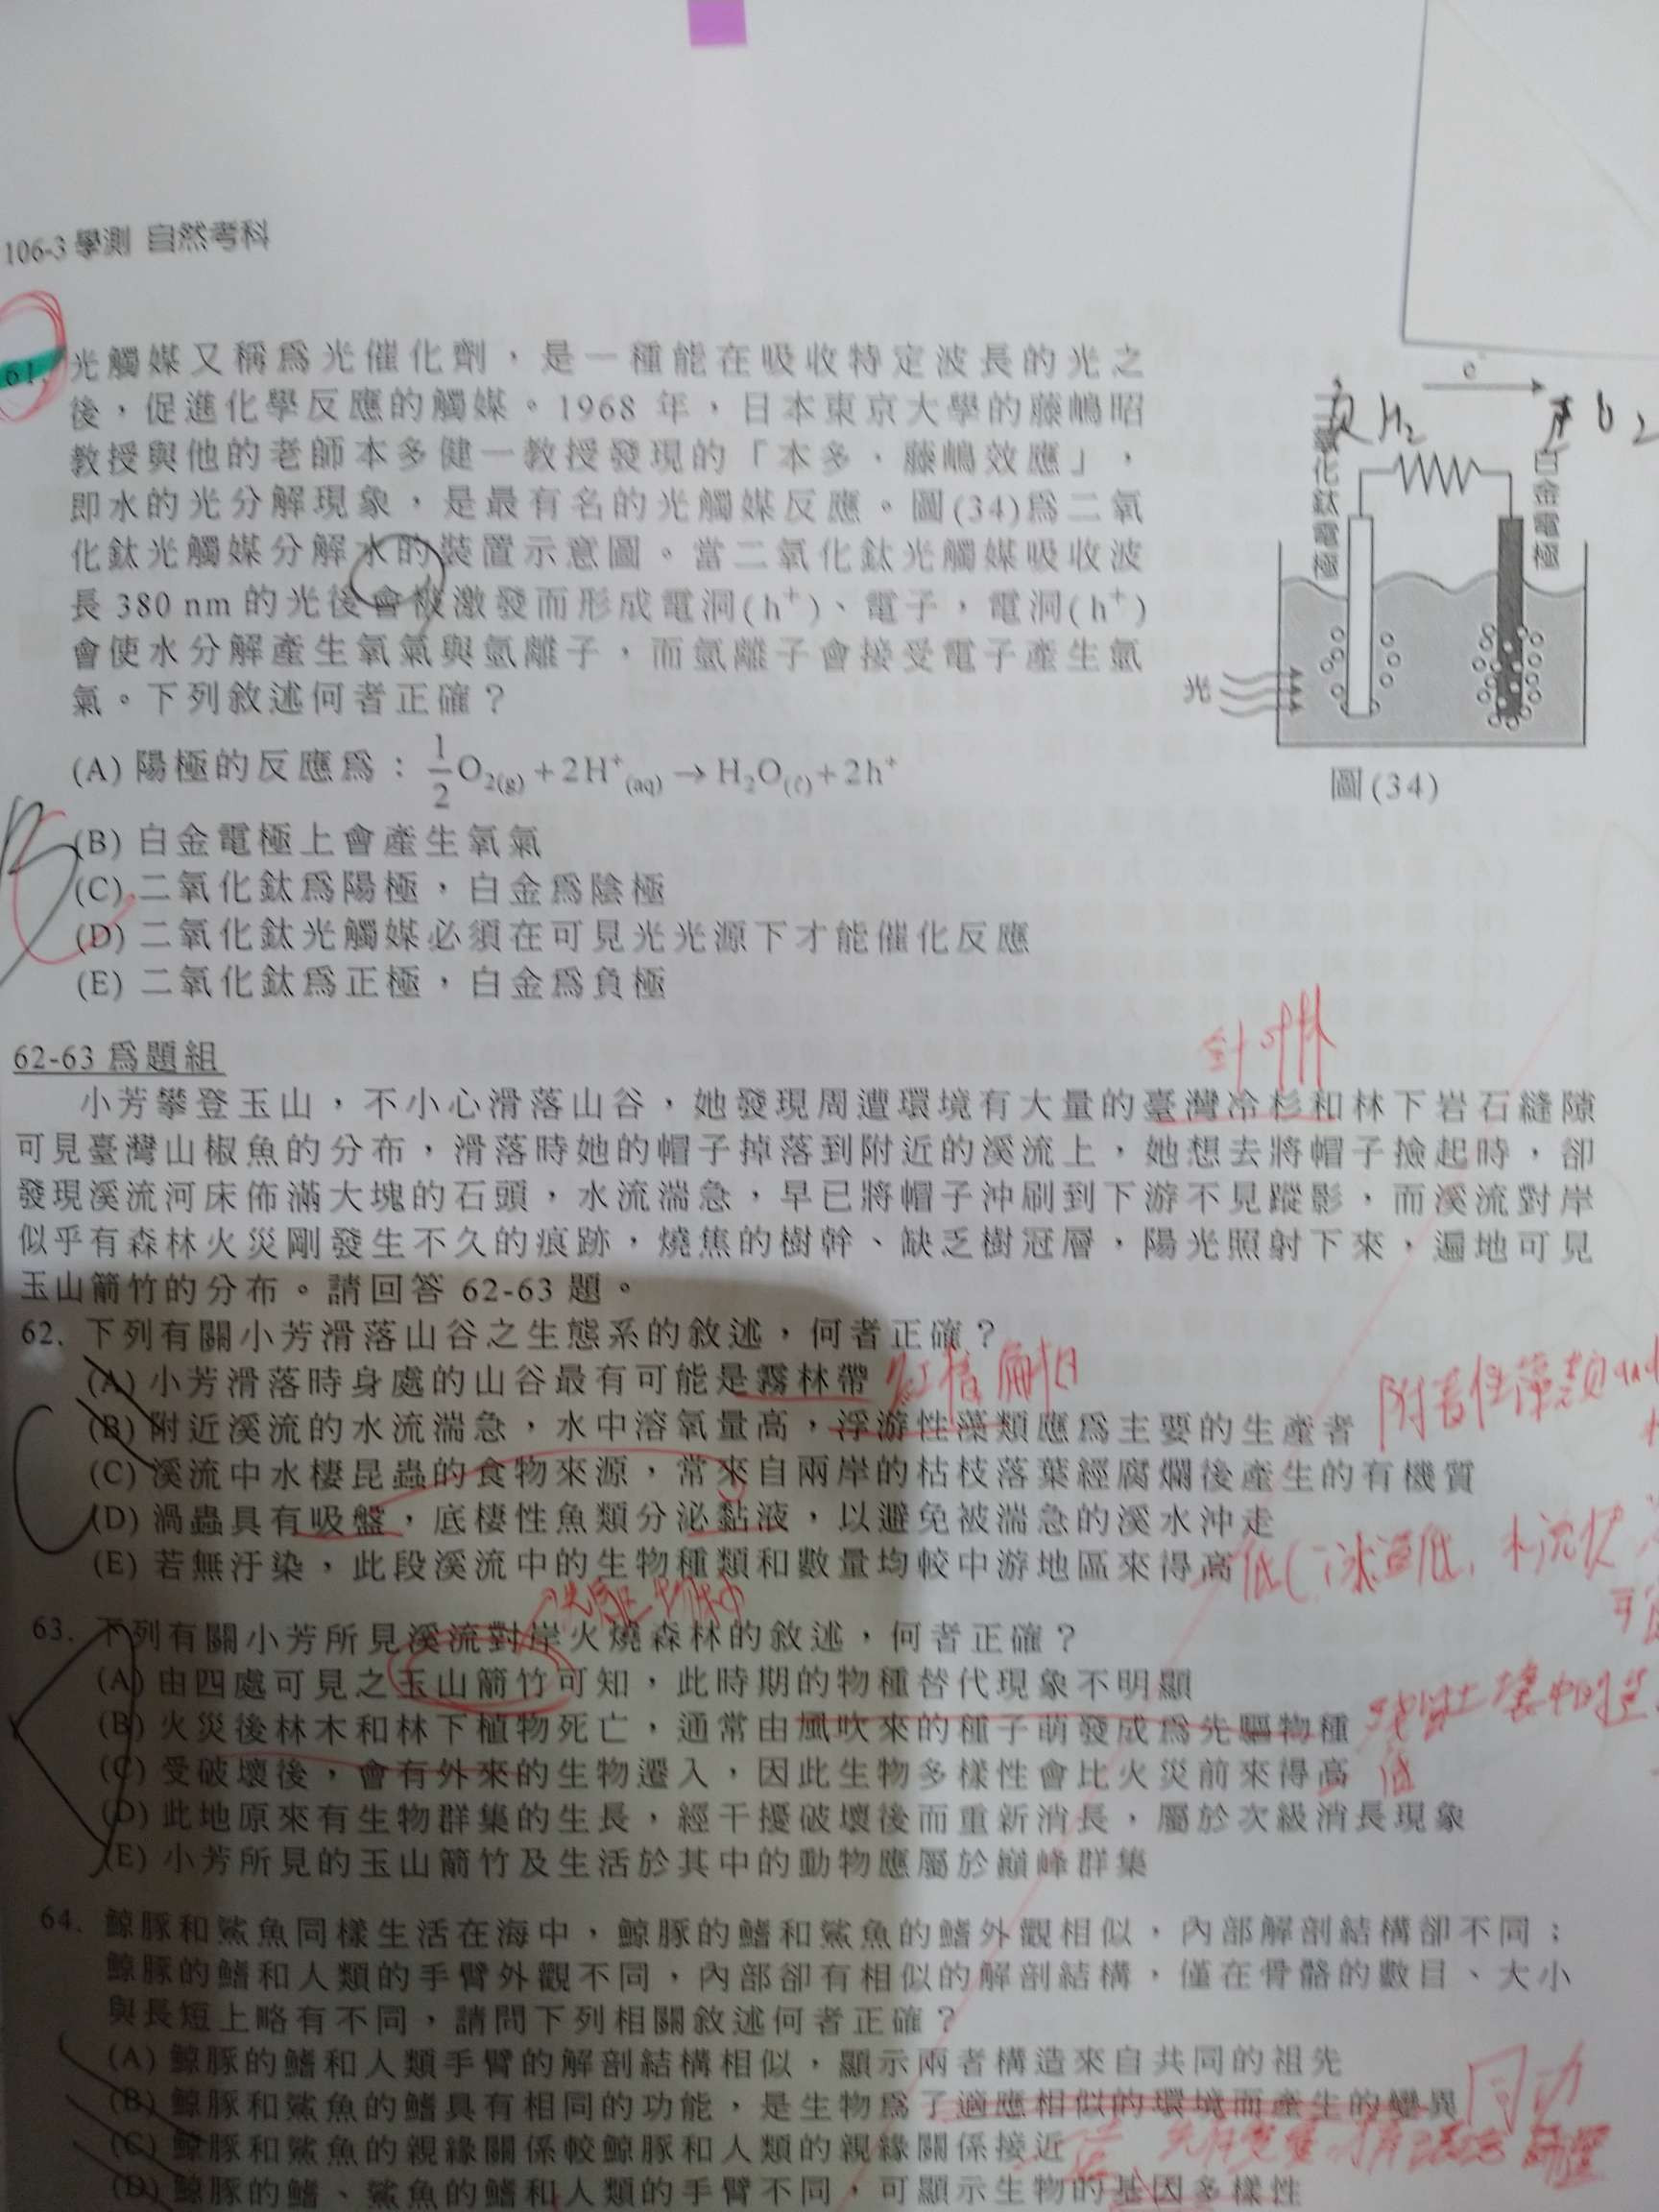 106-3 學測 自然考科
61. 光觸媒又稱為光催化劑，是一種能在吸收特定波長的光之
後，促進化學反應的觸媒。1968 年，日本東京大學的藤嶋昭
教授與他的老師本多健一教授發現的「本多．藤嶋效應」，
即水的光分解現象，是最有名的光觸媒反應。圖(34)為二氧
化鈦光觸媒分解水的裝置示意圖。當二氧化鈦光觸媒吸收波
長 380 nm 的光後會被激發而形成電洞(h⁺)、電子，電洞(h⁺)
會使水分解產生氧氣與氫離子，而氫離子會接受電子產生氫
氣。下列敘述何者正確？
(A) 陽極的反應為：1/2 O₂(g) + 2H⁺(aq) → H₂O(ℓ) + 2h⁺
(B) 白金電極上會產生氧氣
(C) 二氧化鈦為陽極，白金為陰極
(D) 二氧化鈦光觸媒必須在可見光光源下才能催化反應
(E) 二氧化鈦為正極，白金為負極
e⁻
H₂
O₂
二氧化鈦電極
白金電極
光
圖(34)
62-63 為題組
針叶林
小芳攀登玉山，不小心滑落山谷，她發現周遭環境有大量的臺灣冷杉和林下岩石縫隙
可見臺灣山椒魚的分布，滑落時她的帽子掉落到附近的溪流上，她想去將帽子撿起時，卻
發現溪流河床佈滿大塊的石頭，水流湍急，早已將帽子沖刷到下游不見蹤影，而溪流對岸
似乎有森林火災剛發生不久的痕跡，燒焦的樹幹、缺乏樹冠層，陽光照射下來，遍地可見
玉山箭竹的分布。請回答 62-63 題。
62. 下列有關小芳滑落山谷之生態系的敘述，何者正確？
(A) 小芳滑落時身處的山谷最有可能是霧林帶 紅檜 扁柏
(B) 附近溪流的水流湍急，水中溶氧量高，浮游性藻類應為主要的生產者 附著性藻類
(C) 溪流中水棲昆蟲的食物來源，常來自兩岸的枯枝落葉經腐爛後產生的有機質
(D) 渦蟲具有吸盤，底棲性魚類分泌黏液，以避免被湍急的溪水沖走
(E) 若無汙染，此段溪流中的生物種類和數量均較中游地區來得高 低
63. 下列有關小芳所見溪流對岸火燒森林的敘述，何者正確？
(A) 由四處可見之玉山箭竹可知，此時期的物種替代現象不明顯
(B) 火災後林木和林下植物死亡，通常由風吹來的種子萌發成為先驅物種
(C) 受破壞後，會有外來的生物遷入，因此生物多樣性會比火災前來得高 低
(D) 此地原來有生物群集的生長，經干擾破壞後而重新消長，屬於次級消長現象
(E) 小芳所見的玉山箭竹及生活於其中的動物應屬於巔峰群集
64. 鯨豚和鯊魚同樣生活在海中，鯨豚的鰭和鯊魚的鰭外觀相似，內部解剖結構卻不同；
鯨豚的鰭和人類的手臂外觀不同，內部卻有相似的解剖結構，僅在骨骼的數目、大小
與長短上略有不同，請問下列相關敘述何者正確？
(A) 鯨豚的鰭和人類手臂的解剖結構相似，顯示兩者構造來自共同的祖先
(B) 鯨豚和鯊魚的鰭具有相同的功能，是生物為了適應相似的環境而產生的變異 同功
(C) 鯨豚和鯊魚的親緣關係較鯨豚和人類的親緣關係接近
(D) 鯨豚的鰭、鯊魚的鰭和人類的手臂不同，可顯示生物的基因多樣性